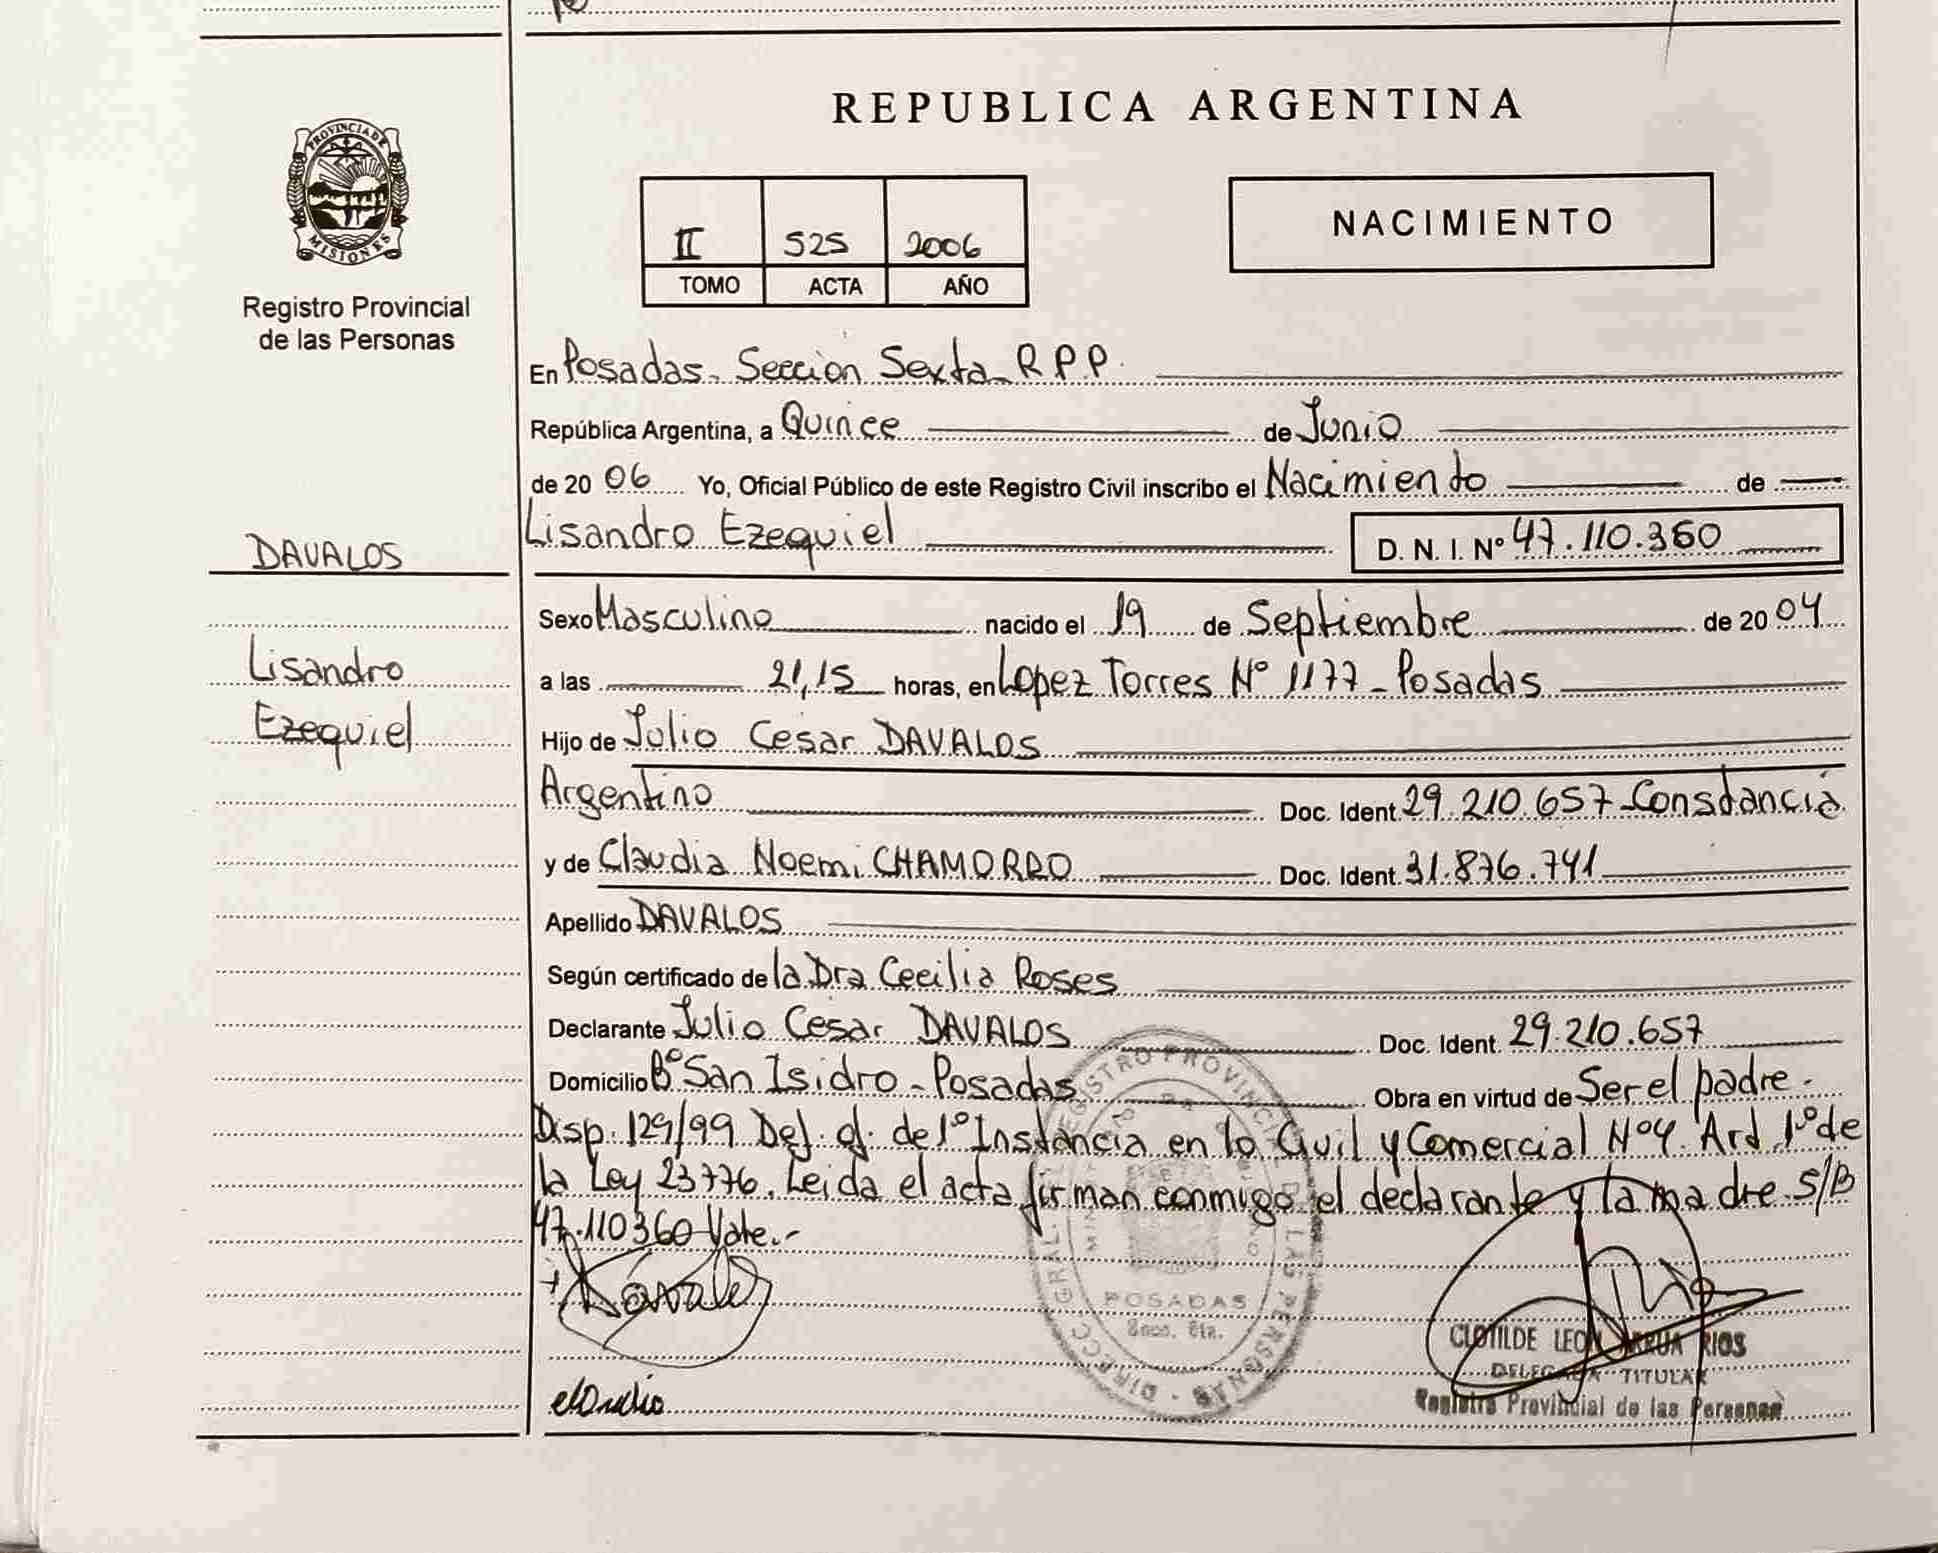 REPUBLICA ARGENTINA
PROVINCIA DE
MISIONES
Registro Provincial
de las Personas
II 525 2006
TOMO ACTA AÑO
NACIMIENTO
En Posadas - Sección Sexta - R.P.P.
República Argentina, a Quince de Junio
de 20 06 Yo, Oficial Público de este Registro Civil inscribo el Nacimiento de
DAVALOS
Lisandro Ezequiel D. N. I. Nº 47.110.360
Sexo Masculino nacido el 19 de Septiembre de 20 04
Lisandro
a las 21,15 horas, en Lopez Torres Nº 1177 - Posadas
Ezequiel
Hijo de Julio Cesar DAVALOS
Argentino Doc. Ident. 29.210.657 - Constancia
y de Claudia Noemi CHAMORRO Doc. Ident. 31.876.741
Apellido DAVALOS
Según certificado de la Dra Cecilia Roses
Declarante Julio Cesar DAVALOS Doc. Ident. 29.210.657
Domicilio Bº San Isidro - Posadas Obra en virtud de Ser el padre.
Disp. 129/99 Def. of. de 1º Instancia en lo Civil y Comercial Nº4. Art. 1º de
la Ley 23776. Leida el acta firman conmigo el declarante y la madre. S/B
47.110360 Vale.-
DIRECC. GRAL. REGISTRO PROVINCIAL DE LAS PERSONAS
POSADAS
CLOTILDE LEON ARRUA RIOS
DELEGADA TITULAR
Registro Provincial de las Personas